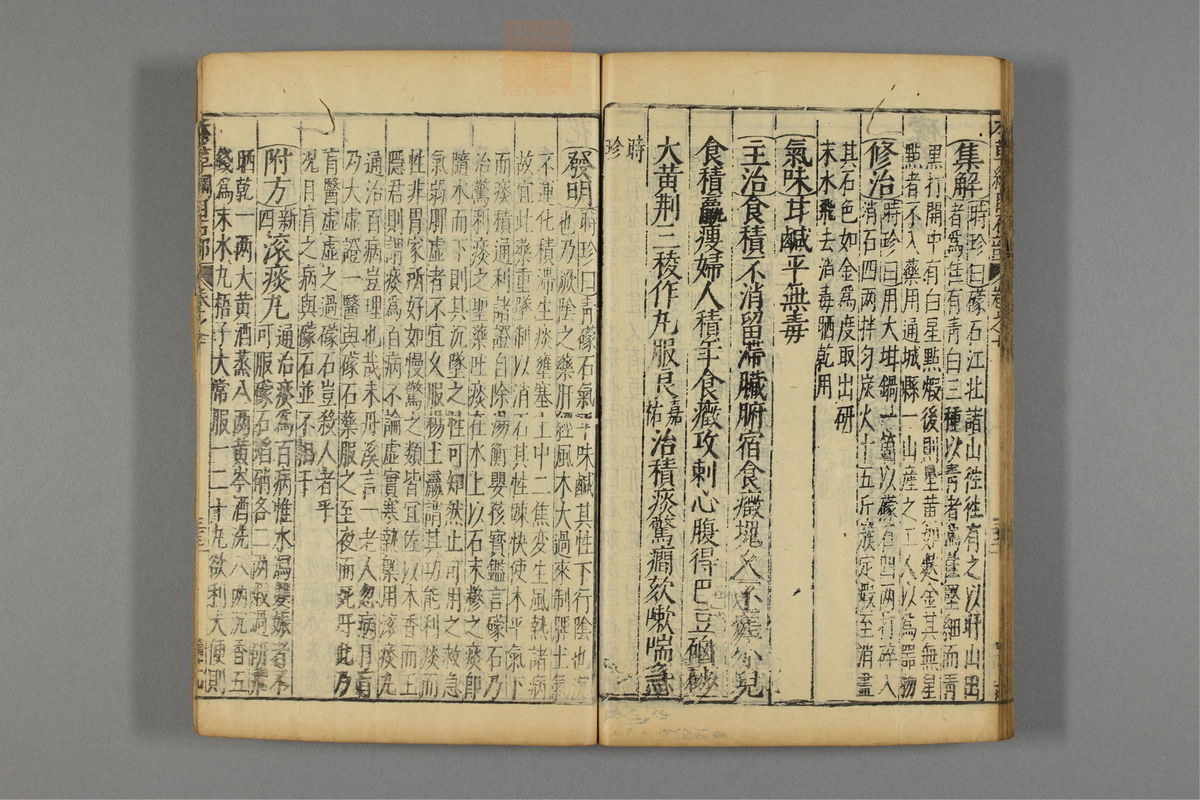 集解時珍曰礞石江北諸山往往有之以旴山出
者爲佳有青白二種以青者爲佳堅細而青
黒打開中有白星點煅後則星黄如麩金其無星
點者不入藥用通城縣一山産之工人以爲器物
修治時珍曰用大坩鍋一箇以礞石四兩打碎入
消石四两拌匀炭火十五斤簇定煅至消盡
其石色如金爲度取出研
末水飛去消毒晒乾用
氣味甘鹹平無毒
主治食積不消留滯臟腑宿食癥塊久不瘥小兒
食積羸痩婦人積年食癥攻刺心腹得巴豆硇砂
大黄荆三稜作丸服良嘉祐治積痰驚癎欬嗽喘急
時珍
發明時珍曰青礞石氣平味鹹其性下行陰也沉
也乃厥陰之藥肝經風木大過來制脾土氣
不運化積滯生痰壅塞上中二焦変生風熱諸病
故宜此藥重墜制以消石其性踈快使木平氣下
而痰積通利諸證自除湯衡嬰孩寳鑑言礞石乃
治驚利痰之聖藥吐痰在水上以石末糝之痰即
隨水而下則其沉墜之性可知然止可用之救急
氣弱脾虛者不宜久服楊士瀛謂其功能利痰而
性非胃家所好如慢驚之類皆宜佐以木香而王
隱君則謂痰爲百病不論虛實寒熱槩用滚痰丸
通治百病豈理也哉朱丹溪言一老人忽病目盲
乃大虛證一醫與礞石藥服之至夜而死吁此乃
盲醫虛虛之過礞石豈殺人者乎
况目盲之病與礞石並不相干
附方新四滚痰丸通治痰爲百病惟水瀉雙娠者不
可服礞石焰硝各二兩煅過研飛
晒乾一兩大黄酒蒸八两黄芩酒洗八兩沉香五
錢爲末水丸梧子大常服一二十丸欲利大便則
本草綱目石部 卷之十